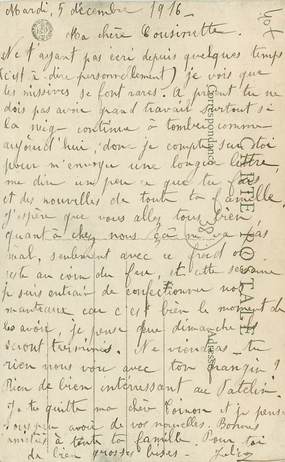 Mardi, 5 décembre 1916_
Ma chère Cousinette_
N'ayant pas écrit depuis quelques temps
(c'est à dire personnellement) je vois que
les missives se font rares. A présent tu ne
dois pas avoir grand travail surtout si
la neige continue à tomber comme
aujourd'hui, donc je compte sur toi
pour m'envoyer une longue lettre,
me dire un peu ce que tu fais
et des nouvelles de toute ta famille.
J'espère que vous allez tous bien
quant à chez nous ça ne va pas
mal, seulement avec ce froid on
est au coin du feu, et cette semaine
je suis entrain de confectionner nos
manteaux car c'est bien le moment de
les avoir, je pense que dimanche ils
seront terminés. Ne viendras-tu
rien nous voir avec ton frangin ?
Rien de bien intéressant au Patelin.
Je te quitte ma chère et je pense
sous peu avoir de vos nouvelles. Bonnes
amitiés à toute ta famille. Pour toi
de bien grosses bises.
CARTE POSTALE
Correspondance
Adresse